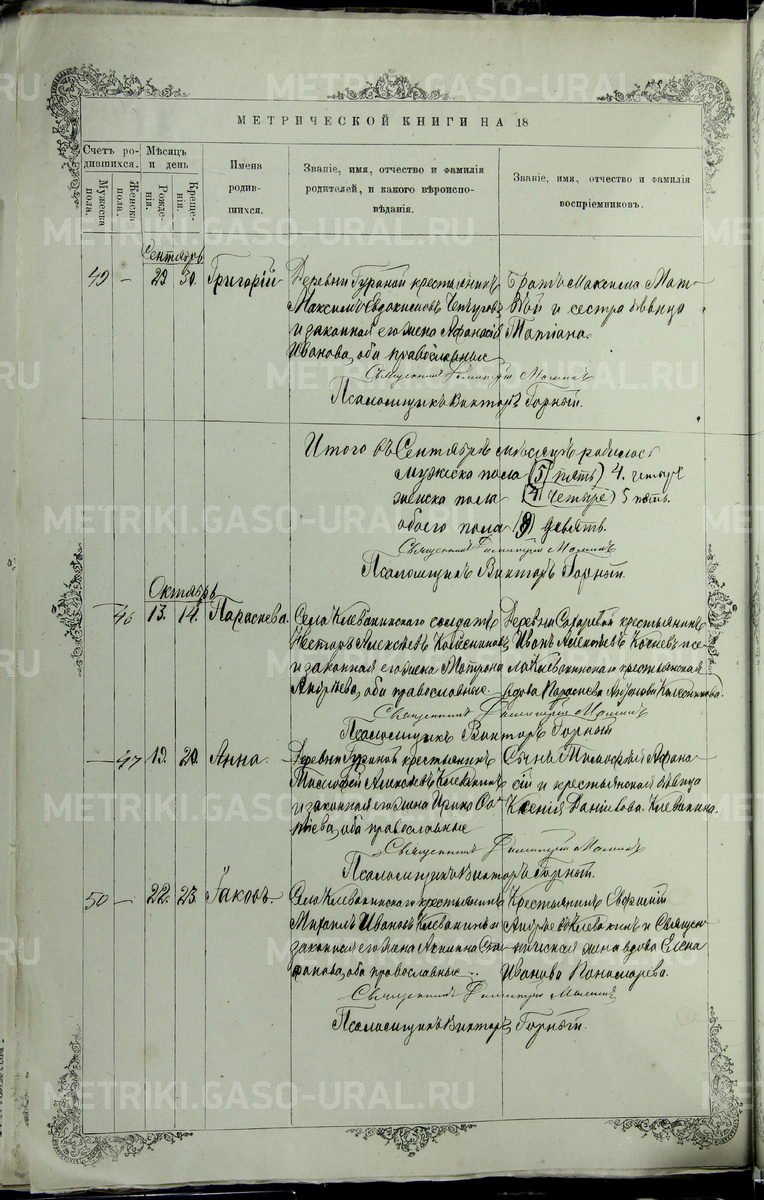 МЕТРИЧЕСКОЙ КНИГИ НА 18
Счетъ родившихся.
Мужеска пола.
Женска пола.
Мѣсяцъ и день
Рожденія.
Крещенія.
Имена родившихся.
Званіе, имя, отчество и фамилія родителей, и какого вѣроисповѣданія.
Званіе, имя, отчество и фамилія воспріемниковъ.
Сентябрь
49 — 29 30. Григорій
Деревни Гуриной крестьянинъ
Максимъ Евдокимовъ
и законная его жена
Иванова, оба православные
Братъ Максима Мат-
вѣй и сестра дѣвица
Татіана.
Священникъ Димитрій
Псаломщикъ Викторъ Горный.
Итого въ Сентябрѣ мѣсяцѣ родилось
мужеска пола (5 пять) 4. четыре
женска пола (4 четыре) 5 пять.
обоего пола (9) девять.
Священникъ Димитрій
Псаломщикъ Викторъ Горный.
Октябрь
— 46 13. 14. Параскева.
Села Клевакинскаго солдатъ
Несторъ Алексѣевъ Колесниковъ
и законная его жена Матрона
Андреева, оба православные
Деревни крестьянинъ
Иванъ Алексѣевъ и се-
ла Клевакинскаго крестьянская
вдова Параскева Колесникова.
Священникъ Димитрій
Псаломщикъ Викторъ Горный
— 47 19. 20. Анна.
Деревни Гуриной крестьянинъ
Тимофей Алексѣевъ Клевакинъ
и законная его жена Ирина Са-
оба православные
Сынъ Тимофея Афана-
сій и крестьянская дѣвица
Ксенія Данилова Клевакина.
Священникъ Димитрій
Псаломщикъ Викторъ Горный.
50 — 22. 23. Іаковъ.
Села Клевакинскаго крестьянинъ
Михаилъ Ивановъ Клевакинъ и
законная его жена Сте-
фанова, оба православные
Крестьянинъ Евфимій
Андреевъ Клевакинъ и Священ-
ническая жена вдова Елена
Иванова Пономарева.
Священникъ Димитрій
Псаломщикъ Викторъ Горный.
METRIKI.GASO-URAL.RU